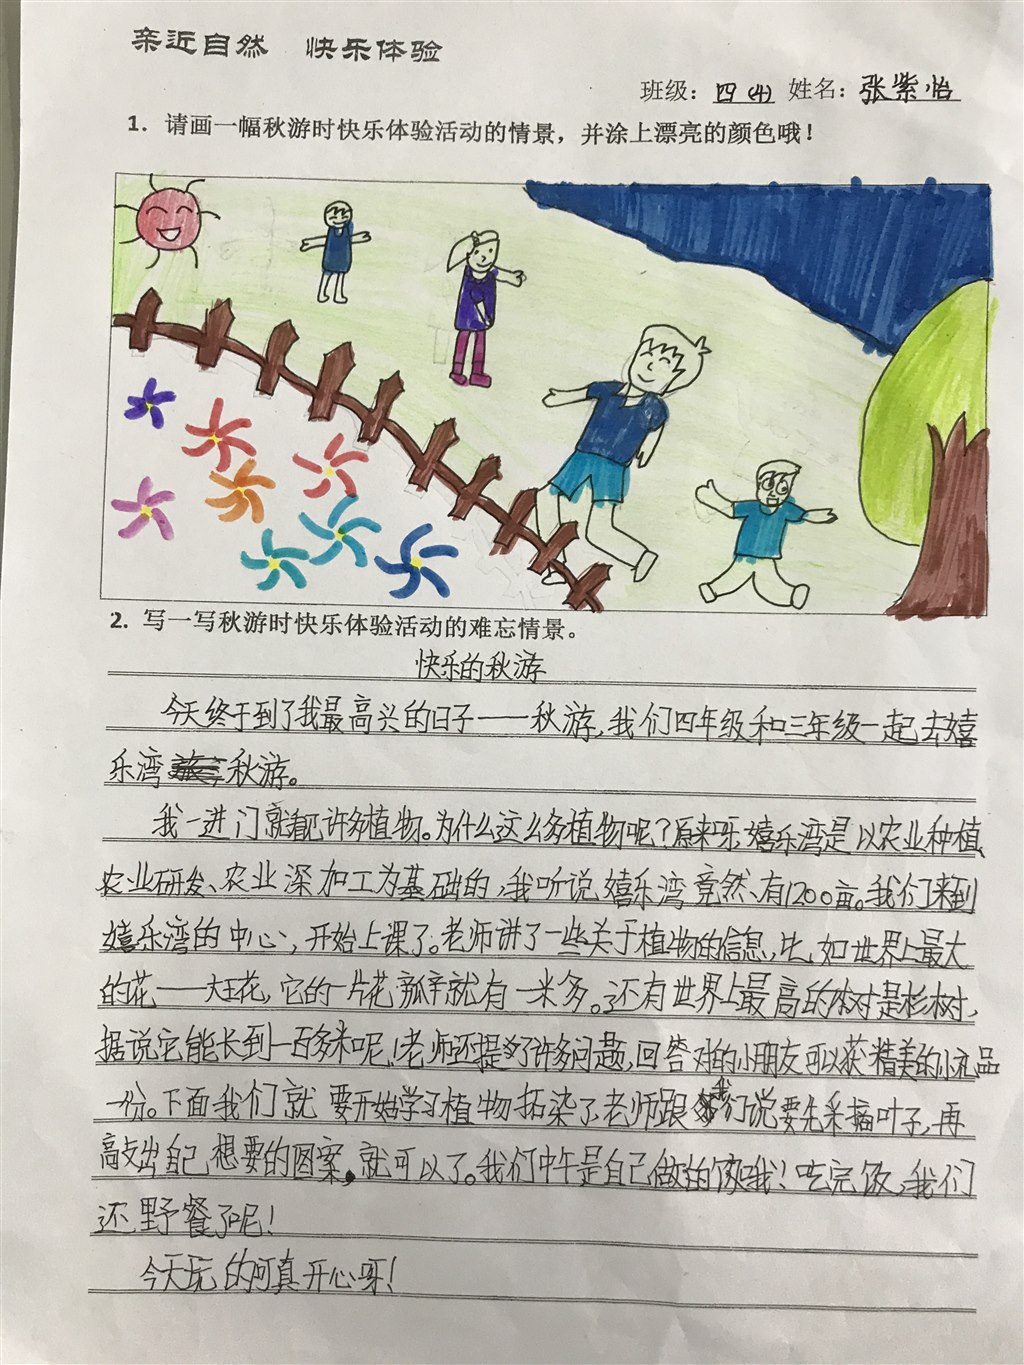 亲近自然 快乐体验
班级：四(4) 姓名：张紫怡
1. 请画一幅秋游时快乐体验活动的情景，并涂上漂亮的颜色哦！
2. 写一写秋游时快乐体验活动的难忘情景。
快乐的秋游
今天终于到了我最高兴的日子——秋游,我们四年级和三年级一起去嬉
乐湾秋游。
我一进门就看许多植物。为什么这么多植物呢？原来呀,嬉乐湾是以农业种植、
农业研发、农业深加工为基础的,我听说嬉乐湾竟然有1200亩。我们来到
嬉乐湾的中心,开始上课了。老师讲了一些关于植物的信息,比如世界上最大
的花——大王花,它的一片花瓣就有一米多。还有世界上最高的树是杉树,
据说它能长到一百多米呢!老师还提了许多问题,回答对的小朋友可以获精美的小礼品
一份。下面我们就要开始学习植物拓染了,老师跟我们说要先采摘叶子,再
敲出自己想要的图案,就可以了。我们中午是自己做的饭哦！吃完饭,我们
还野餐了呢！
今天玩的可真开心呀！